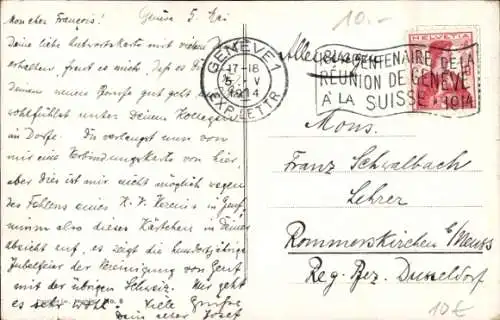 Mon cher François! Genève 5. Mai
Dein liebe Antwortskarte mit vielen
erhalten, freut es mich, daß es Dir
Deinem neuen Berufe gut geht
wohlfühlst unter deinen Kollegen
im Dorfe. Du verlangst nun von
mir eine Verbindungskarte von hier,
aber dies ist mir nicht möglich wegen
des Fehlens eines K. V. Vereins in Genf,
nimm also dieses Kärtchen in
absicht auf, es zeigt die hundertjährige
Jubelfeier der Vereinigung von Genf
mit der übrigen Schweiz. Mir geht
es sehr wohl! Viele Grüße
Dein alter Josef
No. 8
10.-
Allemagne
GENÈVE 1
17-18
5. V
1914
EXP. LETTR.
CENTENAIRE DE LA
RÉUNION DE GENÈVE
À LA SUISSE 1914
HELVETIA
Mons.
Franz Schwalbach
Lehrer
Rommerskirchen b/Neuss
Reg. Bez. Dusseldorf
10€